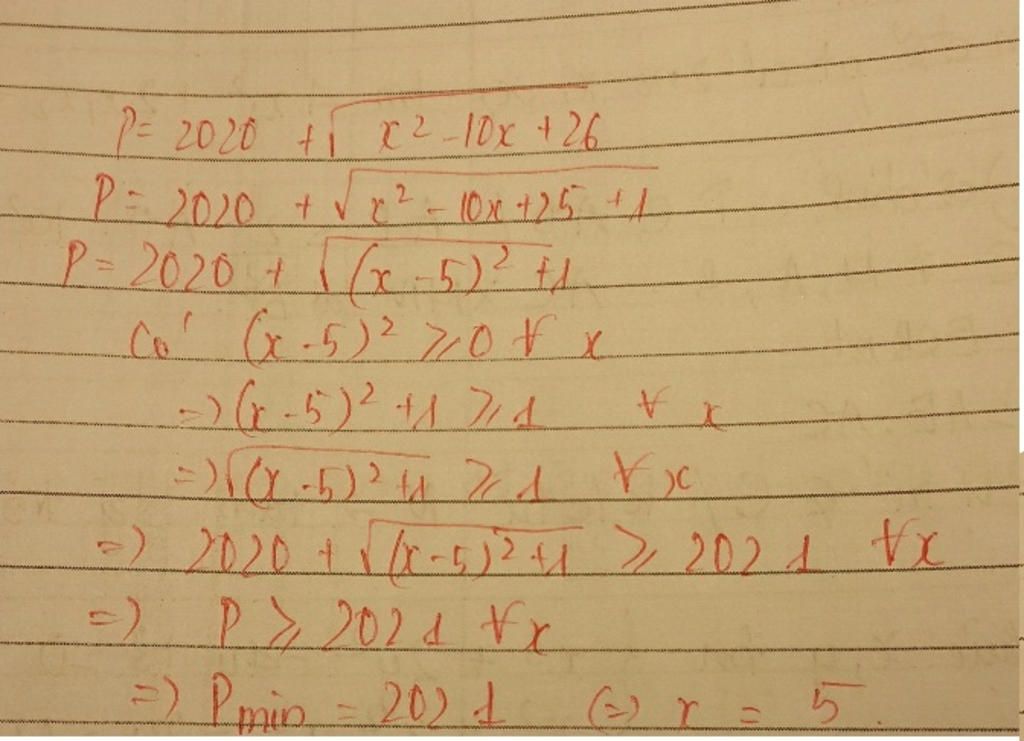 P = 2020 + √(x² - 10x + 26)
P = 2020 + √(x² - 10x + 25 + 1)
P = 2020 + √((x - 5)² + 1)
Có (x - 5)² ⩾ 0 ∀ x
=> (x - 5)² + 1 ⩾ 1 ∀ x
=> √((x - 5)² + 1) ⩾ 1 ∀ x
=> 2020 + √((x - 5)² + 1) ⩾ 2021 ∀ x
=> P ⩾ 2021 ∀ x
=> Pmin = 2021 (=) x = 5.